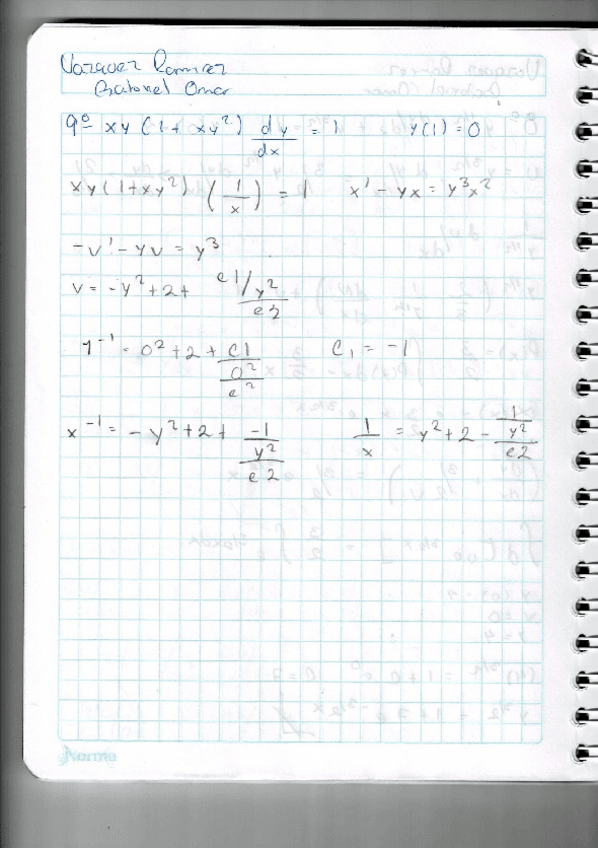 Vazquez Ramirez
Omar
9º- xy (1 + xy²) dy/dx = 1 y(1) = 0
xy(1+xy²) (1/x') = 1 x' - yx = y³x²
-v' - yv = y³
v = -y² + 2 + c1/y²/e2
1⁻¹ = 0² + 2 + C1/0²/e² C₁ = -1
x⁻¹ = -y² + 2 + -1/y²/e2 1/x = y² + 2 - 1/y²/e2
Norma